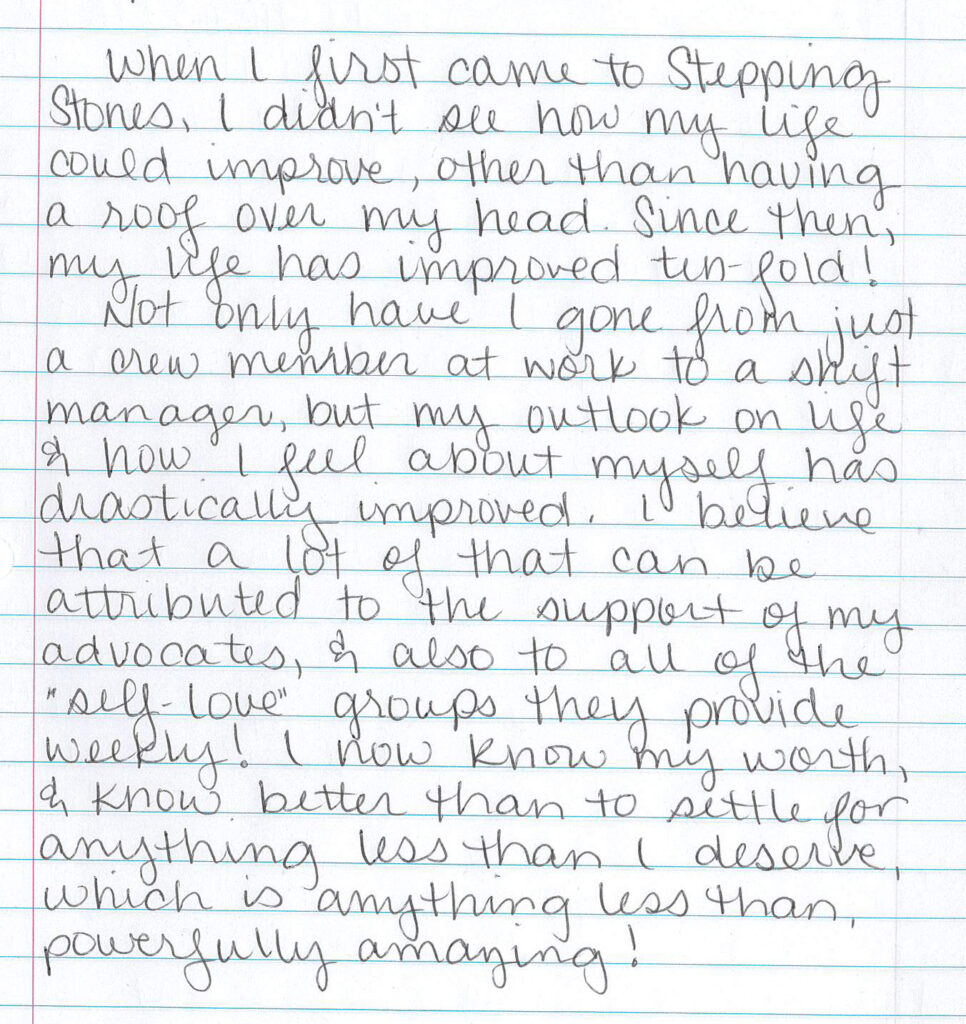 When I first came to Stepping
Stones, I didn't see how my life
could improve, other than having
a roof over my head. Since then,
my life has improved ten-fold!
Not only have I gone from just
a crew member at work to a shift
manager, but my outlook on life
& how I feel about myself has
drastically improved. I believe
that a lot of that can be
attributed to the support of my
advocates, & also to all of the
"self-love" groups they provide
weekly! I now know my worth,
& know better than to settle for
anything less than I deserve,
which is anything less than,
powerfully amazing!